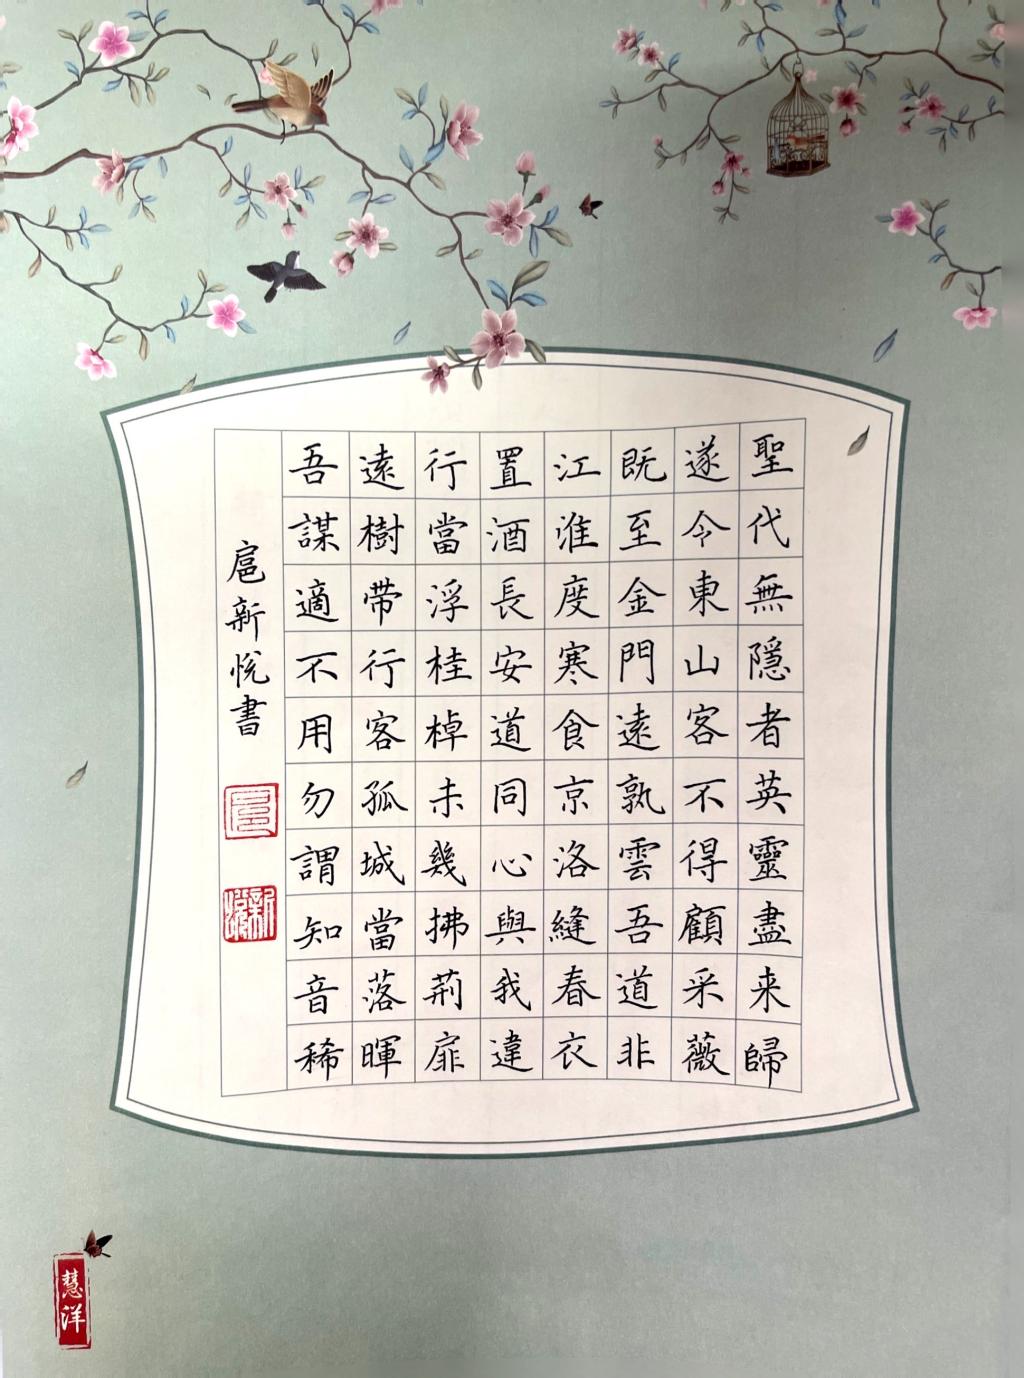 聖代無隱者英靈盡来歸
遂令東山客不得顧采薇
既至金門遠孰雲吾道非
江淮度寒食京洛縫春衣
置酒長安道同心與我違
行當浮桂棹未幾拂荊扉
遠樹带行客孤城當落暉
吾謀適不用勿謂知音稀
扈新悅書
新悅
慧洋